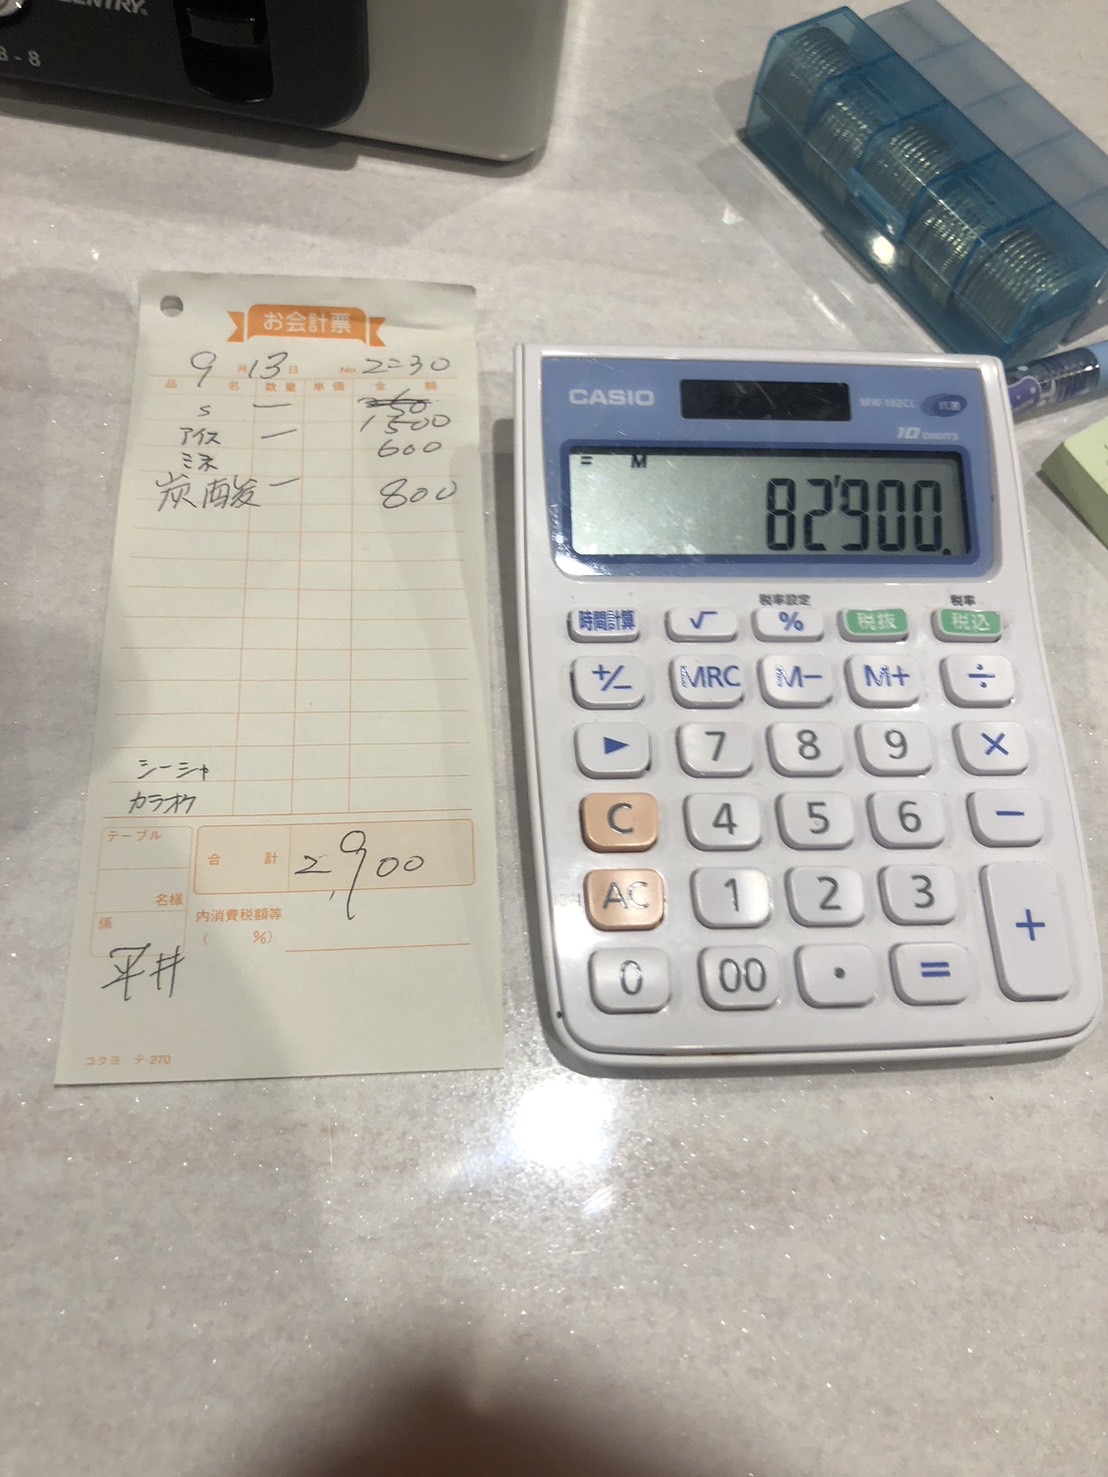 ENTRY®
8-8
お会計票
9月13日 No. 2=30
品名 数量 単価 金額
S 一 1500
アイス 一 600
ミネ
炭 一 800
シーシャ
カラオケ
テーブル
名様
係
合計 2,900
内消費税額等
( %)
平井
コクヨ テ-270
CASIO
MW-102CL 抗菌
10 DIGITS
= M
82'900.
税率設定 税率
時間計算 √ % 税抜 税込
+/− MRC M− M+ ÷
▶ 7 8 9 ×
C 4 5 6 −
AC 1 2 3 +
0 00 • =